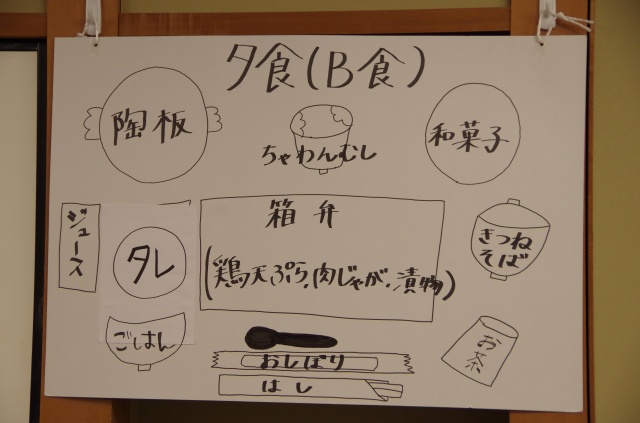 夕食(B食)
陶板
ちゃわんむし
和菓子
ジュース
タレ
箱弁
(鶏天ぷら,肉じゃが,漬物)
きつね
そば
ごはん
おしぼり
はし
お茶